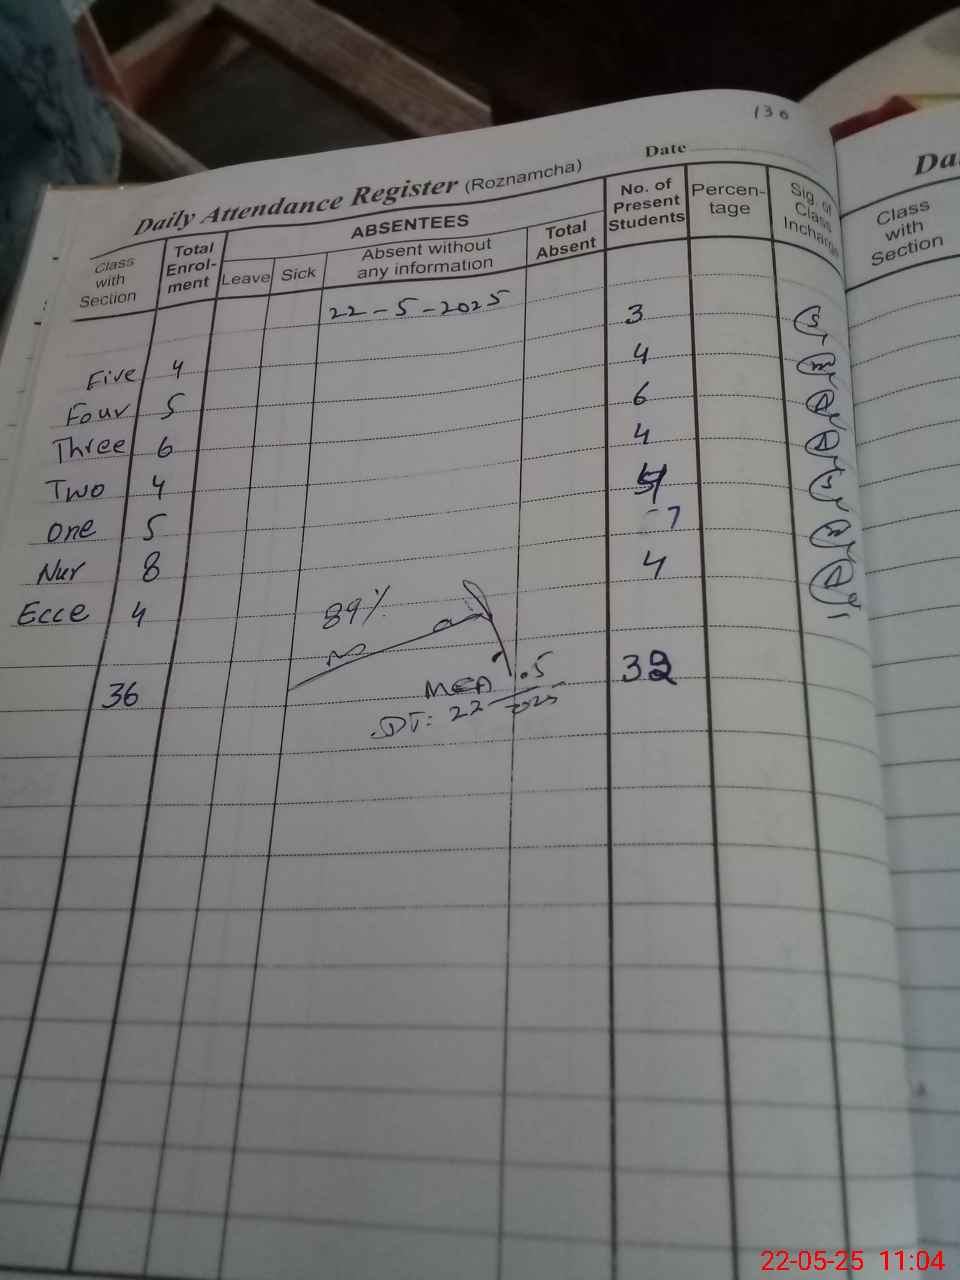 130
Daily Attendance Register (Roznamcha) Date
Da
Class with Section Total Enrol-ment ABSENTEES No. of Present Students Percen-tage Sig. of Class Incharge
Leave Sick Absent without any information Total Absent
Class with Section
22-5-2025
Five 4 3
Four 5 4
Three 6 6
Two 4 4
One 5 4
Nur 8 7
Ecce 4 4
89%
36 32
MEA
DT: 22 .5 2025
22-05-25 11:04